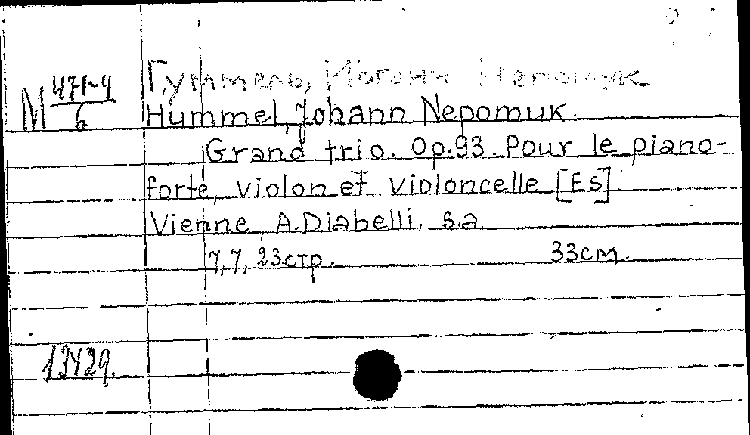 М 471-4
6
Гуммель, Иоганн Непомук
Hummel, Johann Nepomuk.
Grand trio. Op.93. Pour le piano-
forte, violon et violoncelle [Es].
Vienne, A.Diabelli, s.a.
7,7,23стр. 33см.
13429.